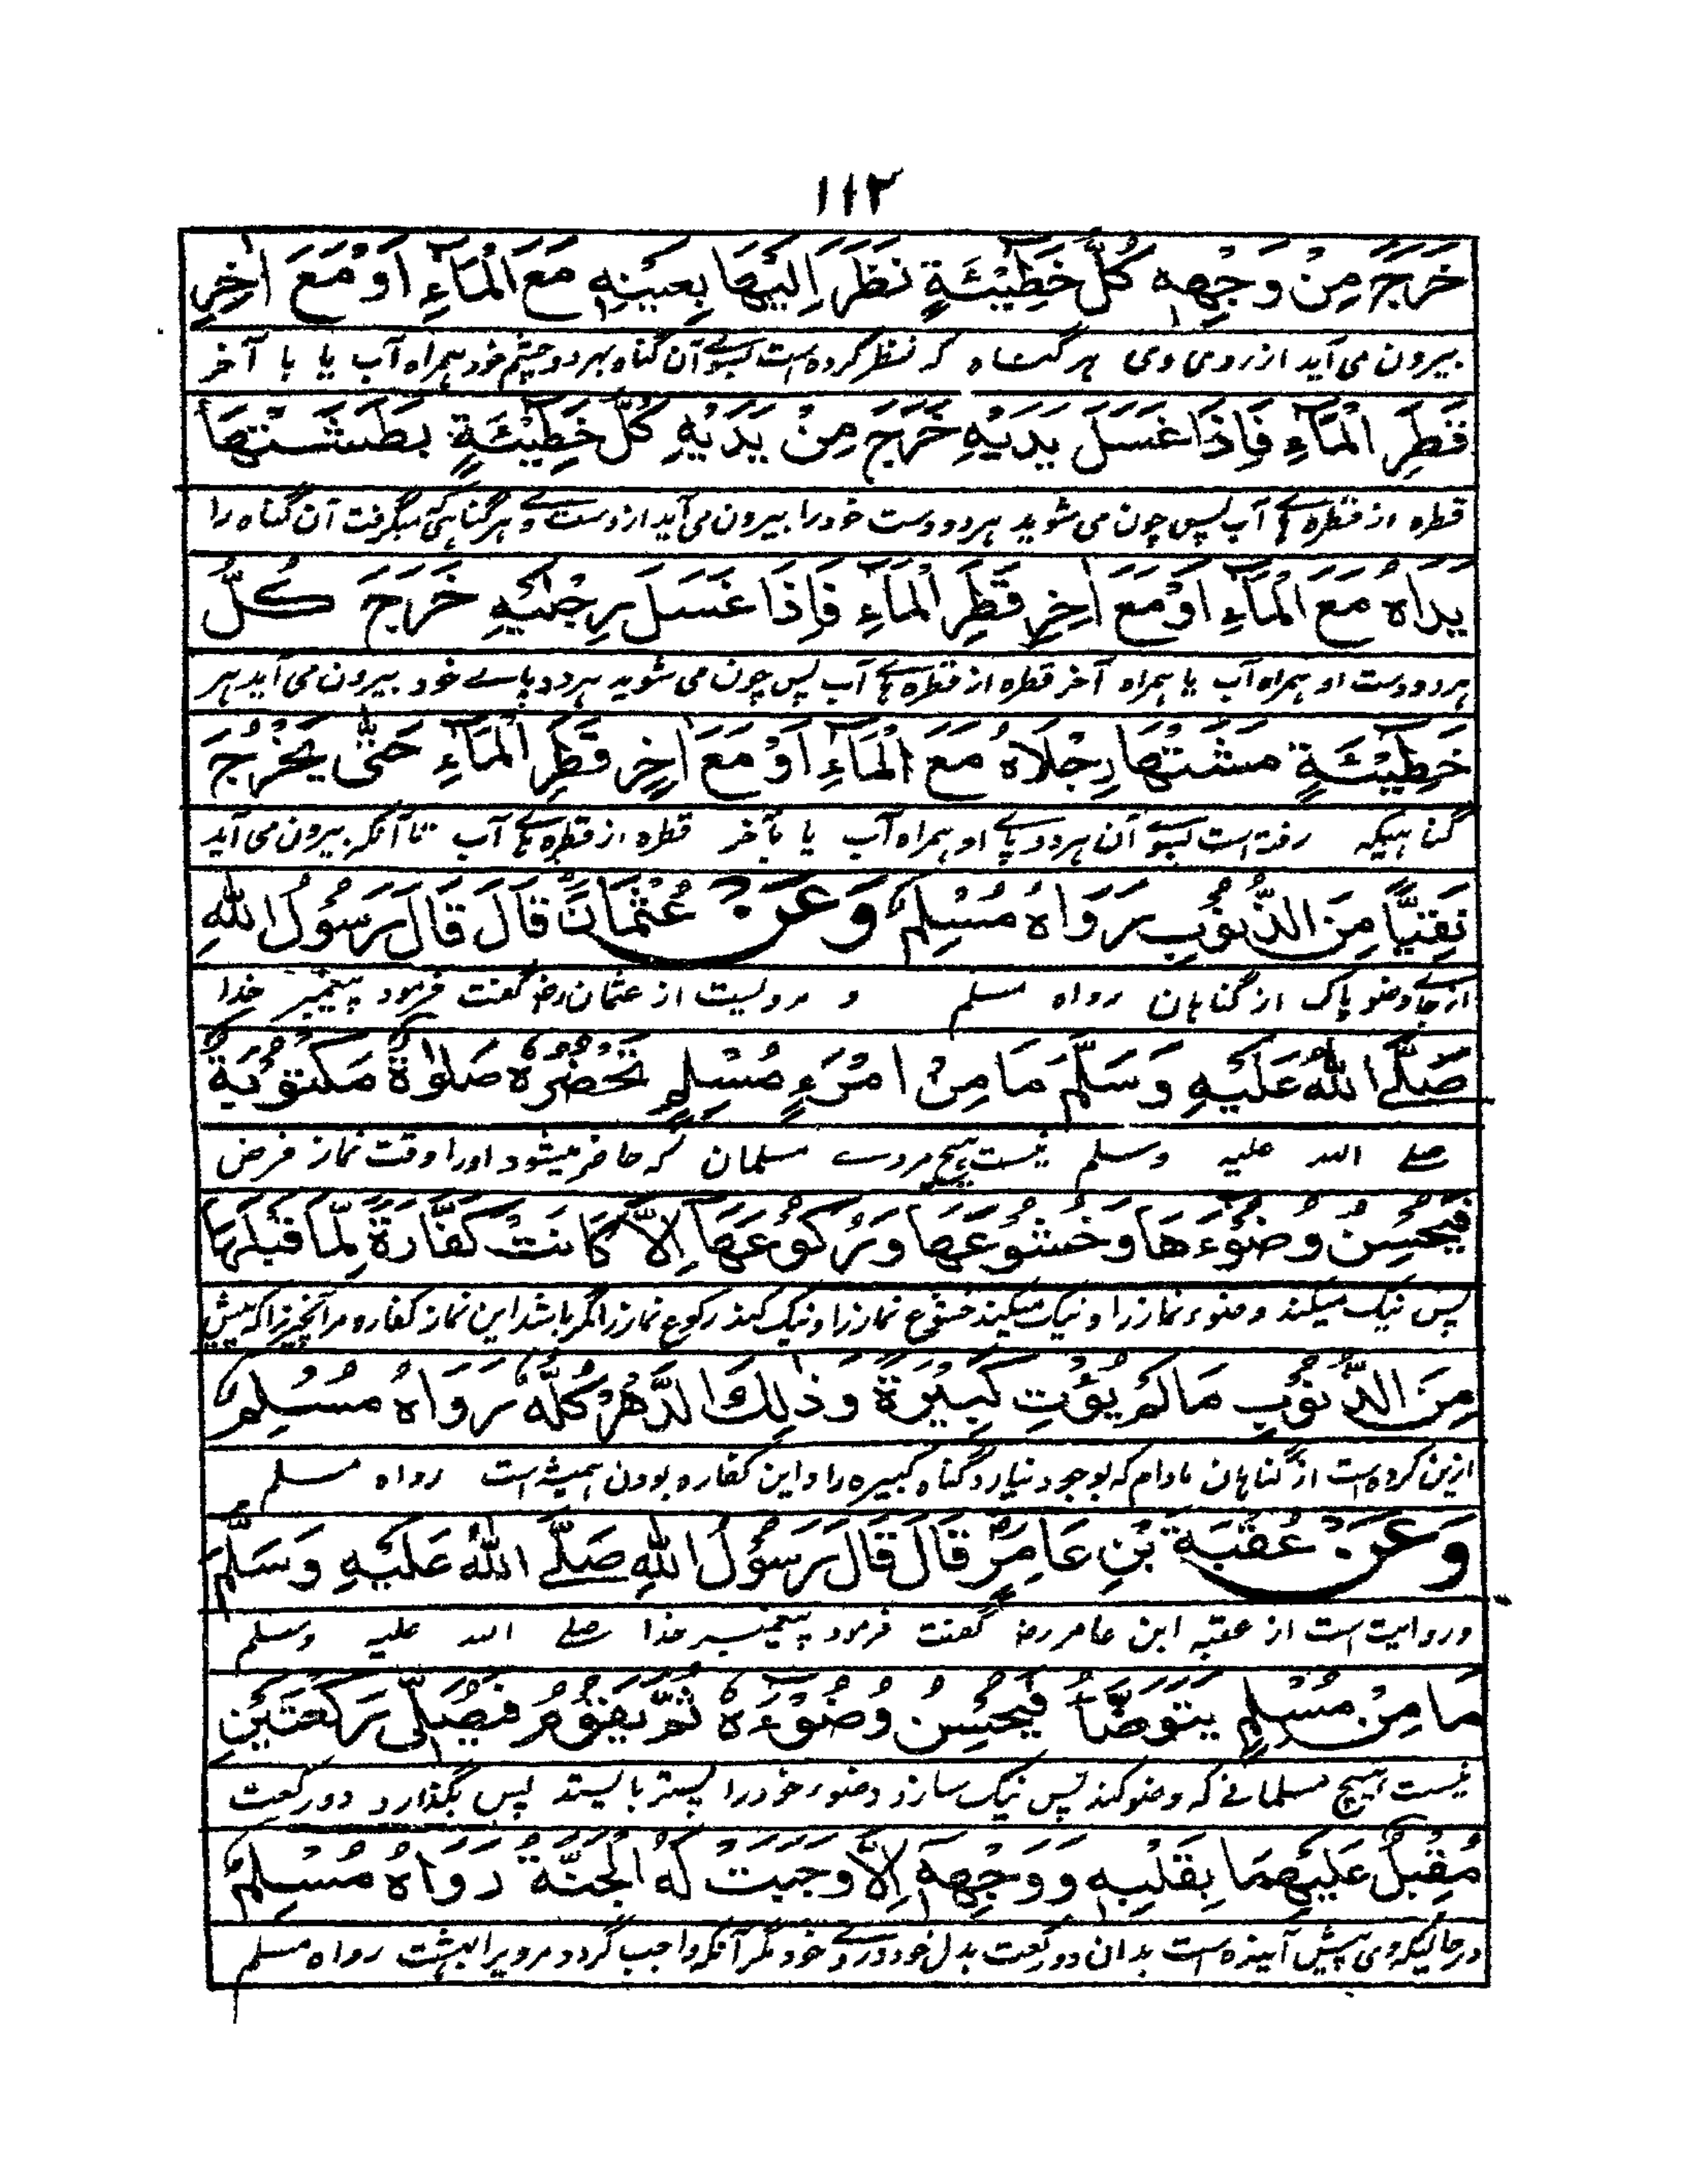 ۱۱۲
خَرَجَ مِنْ وَجْهِهٖ كُلُّ خَطِيْٓئَةٍ نَظَرَ اِلَيْهَا بِعَيْنِهٖ مَعَ الْمَآءِ اَوْ مَعَ اٰخِرِ
بیرون می آید از روی وی هر گناه که نظر کرده است بسوے آن گناه بهر دو چشم خود همراه آب یا با آخر
قَطْرِ الْمَآءِ فَاِذَا غَسَلَ يَدَيْهِ خَرَجَ مِنْ يَدَيْهِ كُلُّ خَطِيْٓئَةٍ بَطَشَتْهَا
قطره از قطره هاے آب پس چون می شوید هر دو دست خود را بیرون می آید از دست وے هر گناهی که میگرفت آن گناه را
يَدَاهُ مَعَ الْمَآءِ اَوْ مَعَ اٰخِرِ قَطْرِ الْمَآءِ فَاِذَا غَسَلَ رِجْلَيْهِ خَرَجَ كُلُّ
هر دو دست او همراه آب یا همراه آخر قطره از قطره هاے آب پس چون می شوید هر دو پاے خود بیرون می آید هر
خَطِيْٓئَةٍ مَشَتْهَا رِجْلَاهُ مَعَ الْمَآءِ اَوْ مَعَ اٰخِرِ قَطْرِ الْمَآءِ حَتّٰى يَخْرُجَ
گناهیکه رفته است بسوے آن هر دو پاے او همراه آب یا بآخر قطره از قطره هاے آب تا آنکه بیرون می آید
نَقِيًّا مِنَ الذُّنُوْبِ رَوَاهُ مُسْلِمٌ وَعَنْ عُثْمَانَ قَالَ قَالَ رَسُوْلُ اللّٰهِ
از جاے وضو پاک از گناهان رواه مسلم و مرویست از عثمان رض گفت فرمود پیغمبر خدا
صَلَّے اللّٰهُ عَلَيْهِ وَسَلَّمَ مَا مِنْ امْرَءٍ مُسْلِمٍ تَحْضُرُهُ صَلٰوةٌ مَكْتُوْبَةٌ
صلے الله علیه وسلم نیست هیچ مردے مسلمان که حاضر میشود اورا وقت نماز فرض
فَيُحْسِنُ وُضُوْٓءَهَا وَخُشُوْعَهَا وَرُكُوْعَهَا اِلَّا كَانَتْ كَفَّارَةً لِّمَا قَبْلَهَا
پس نیک میکند وضوء نماز را و نیک میکند خشوع نماز را و نیک کند رکوع نماز را مگر باشد این نماز کفاره مر آنچیز را که پیش
مِنَ الذُّنُوْبِ مَا لَمْ يُؤْتِ كَبِيْرَةً وَذٰلِكَ الدَّهْرَ كُلَّهُ رَوَاهُ مُسْلِمٌ
ازین کرده است از گناهان مادام که بوجود نیارد گناه کبیره را و این کفاره بودن همیشه است رواه مسلم
وَعَنْ عُقْبَةَ بْنِ عَامِرٍ قَالَ قَالَ رَسُوْلُ اللّٰهِ صَلَّے اللّٰهُ عَلَيْهِ وَسَلَّمَ
و روایت است از عقبه ابن عامر رض گفت فرمود پیغمبر خدا صلے الله علیه وسلم
مَا مِنْ مُسْلِمٍ يَتَوَضَّأُ فَيُحْسِنُ وُضُوْٓءَهُ ثُمَّ يَقُوْمُ فَيُصَلِّىْ رَكْعَتَيْنِ
نیست هیچ مسلمانے که وضو کند پس نیک سازد وضوء خود را پستر بایستد پس بگذارد دو رکعت
مُقْبِلٌ عَلَيْهِمَا بِقَلْبِهٖ وَوَجْهِهٖ اِلَّا وَجَبَتْ لَهُ الْجَنَّةُ رَوَاهُ مُسْلِمٌ
در حالیکه وی پیش آینده است بدان دو رکعت بدل خود و روے خود مگر آنکه واجب گردد مر ویرا بهشت رواه مسلم